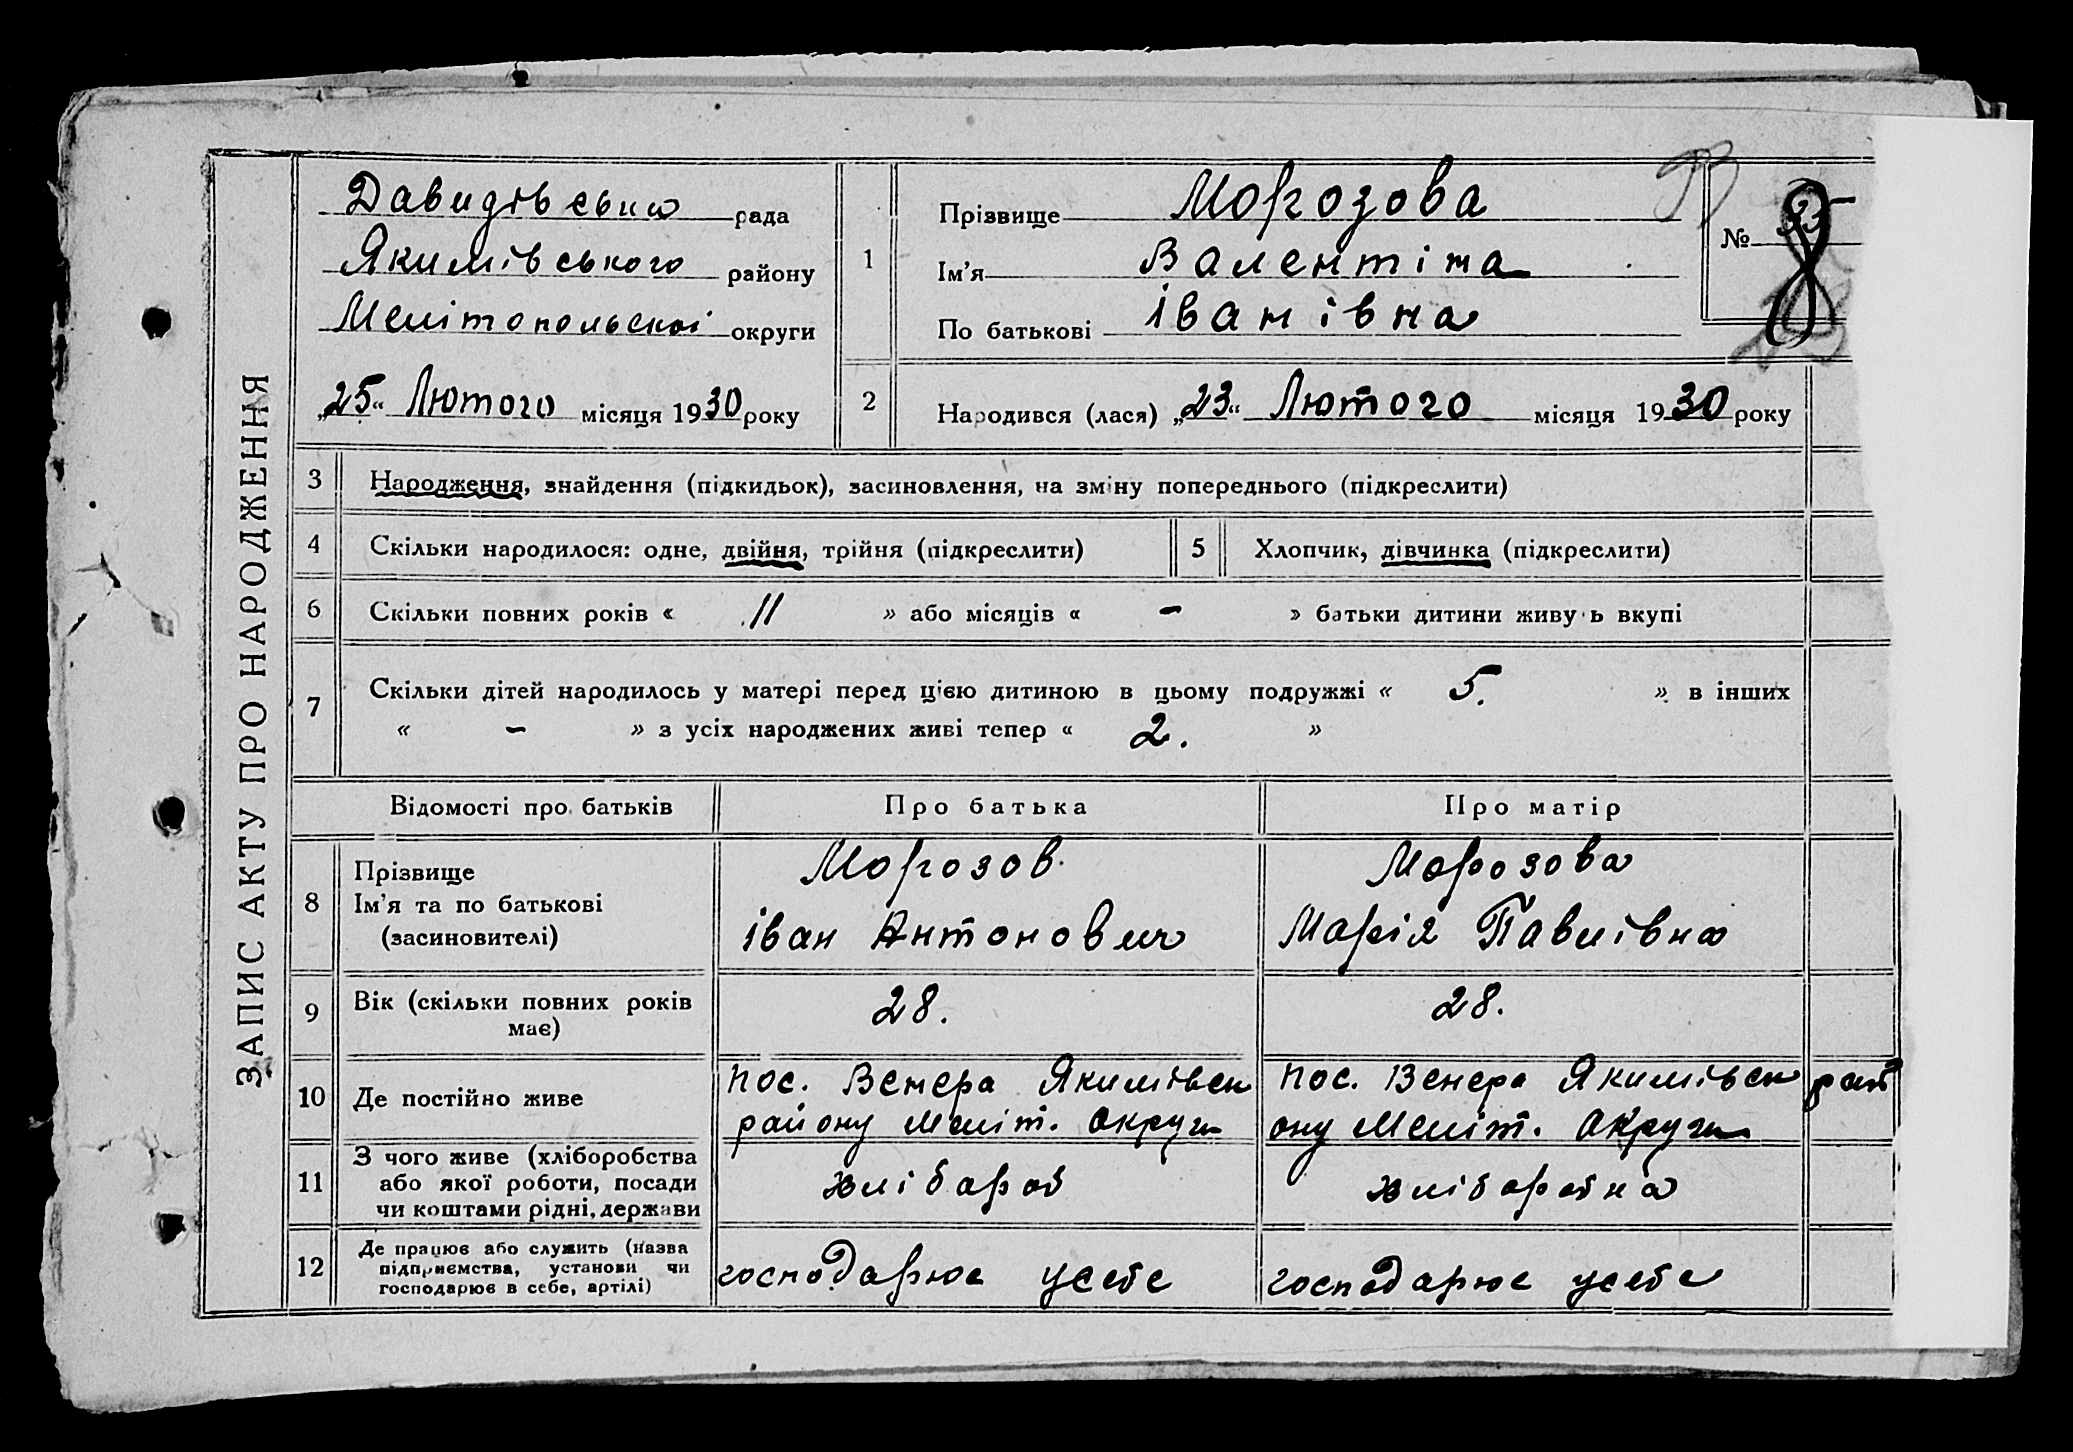 ЗАПИС АКТУ ПРО НАРОДЖЕННЯ
Давидівська рада
Якимівського району
Мелітопольскої округи
„25“ Лютого місяця 1930 року
1
Прізвище Морозова
Ім'я Валентіна
По батькові Іванівна
№ 35
8
2
Народився (лася) „23“ Лютого місяця 1930 року
3 Народження, знайдення (підкидьок), засиновлення, на зміну попереднього (підкреслити)
4 Скільки народилося: одне, двійня, трійня (підкреслити)
5 Хлопчик, дівчинка (підкреслити)
6 Скільки повних років « 11 » або місяців « - » батьки дитини живу ь вкупі
7 Скільки дітей народилось у матері перед цією дитиною в цьому подружжі « 5. » в інших
« - » з усіх народжених живі тепер « 2. »
Відомості про батьків Про батька Про матір
8 Прізвище
Ім'я та по батькові
(засиновителі)
Морозов
Іван Антонович
Морозова
Марія Павлівна
9 Вік (скільки повних років
має)
28.
28.
10 Де постійно живе
пос. Венера Якимівськ
району Меліт. округи
пос. Венера Якимівськ рай
ону Меліт. округи
11 З чого живе (хліборобства
або якої роботи, посади
чи коштами рідні, держави
хлібороб
хліборобка
12 Де працює або служить (назва
підприємства, установи чи
господарює в себе, артілі)
господарює усебе
господарює усебе